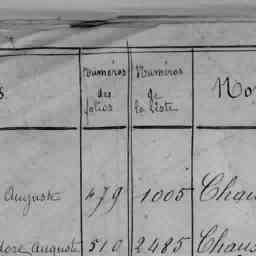 Numéros Numéros
s. des de No
folios la liste
Auguste 479 1005 Chau
dore Auguste 510 2485 Chaus